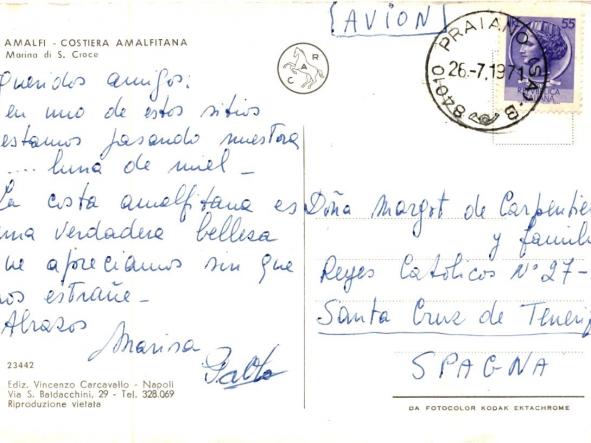 AMALFI - COSTIERA AMALFITANA
Marina di S. Croce
Queridos amigos:
en uno de estos sitios
estamos pasando nuestra
.... luna de miel -
La costa amalfitana es
una verdadera belleza
que apreciamos sin que
nos extrañe -
Abrazos
Marisa
Pablo
23442
Ediz. Vincenzo Carcavallo - Napoli
Via S. Baldacchini, 29 - Tel. 328.069
Riproduzione vietata
C A R
[AVION]
55
84010 PRAIANO (SA) B
26.-7.1971
Doña Margot de Carpentie
y famili
Reyes Católicos Nº 27-
Santa Cruz de Tenerif
SPAGNA
DA FOTOCOLOR KODAK EKTACHROME